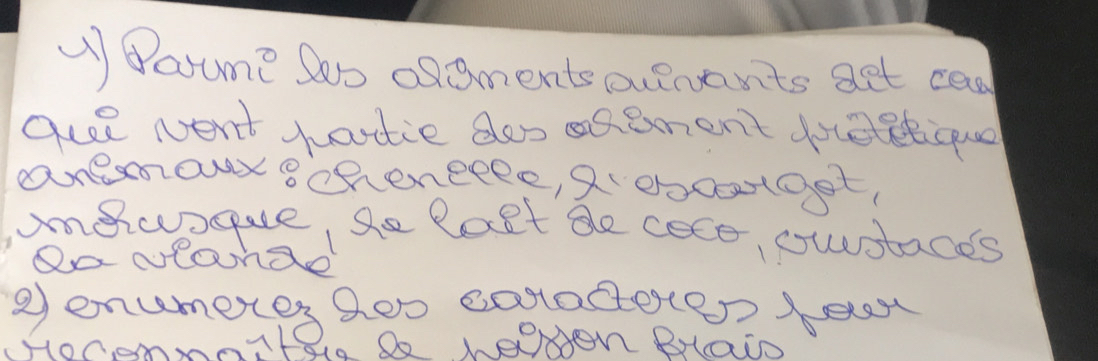 1) Parmi les aliments suivants dit ceux
qui vont partie des aliment protétique
animaux : chenille, l'escargot,
molusque, le lait de coco, crustacés
la viande
2) enumerez les caracteres pour
reconnaître le poisson frais